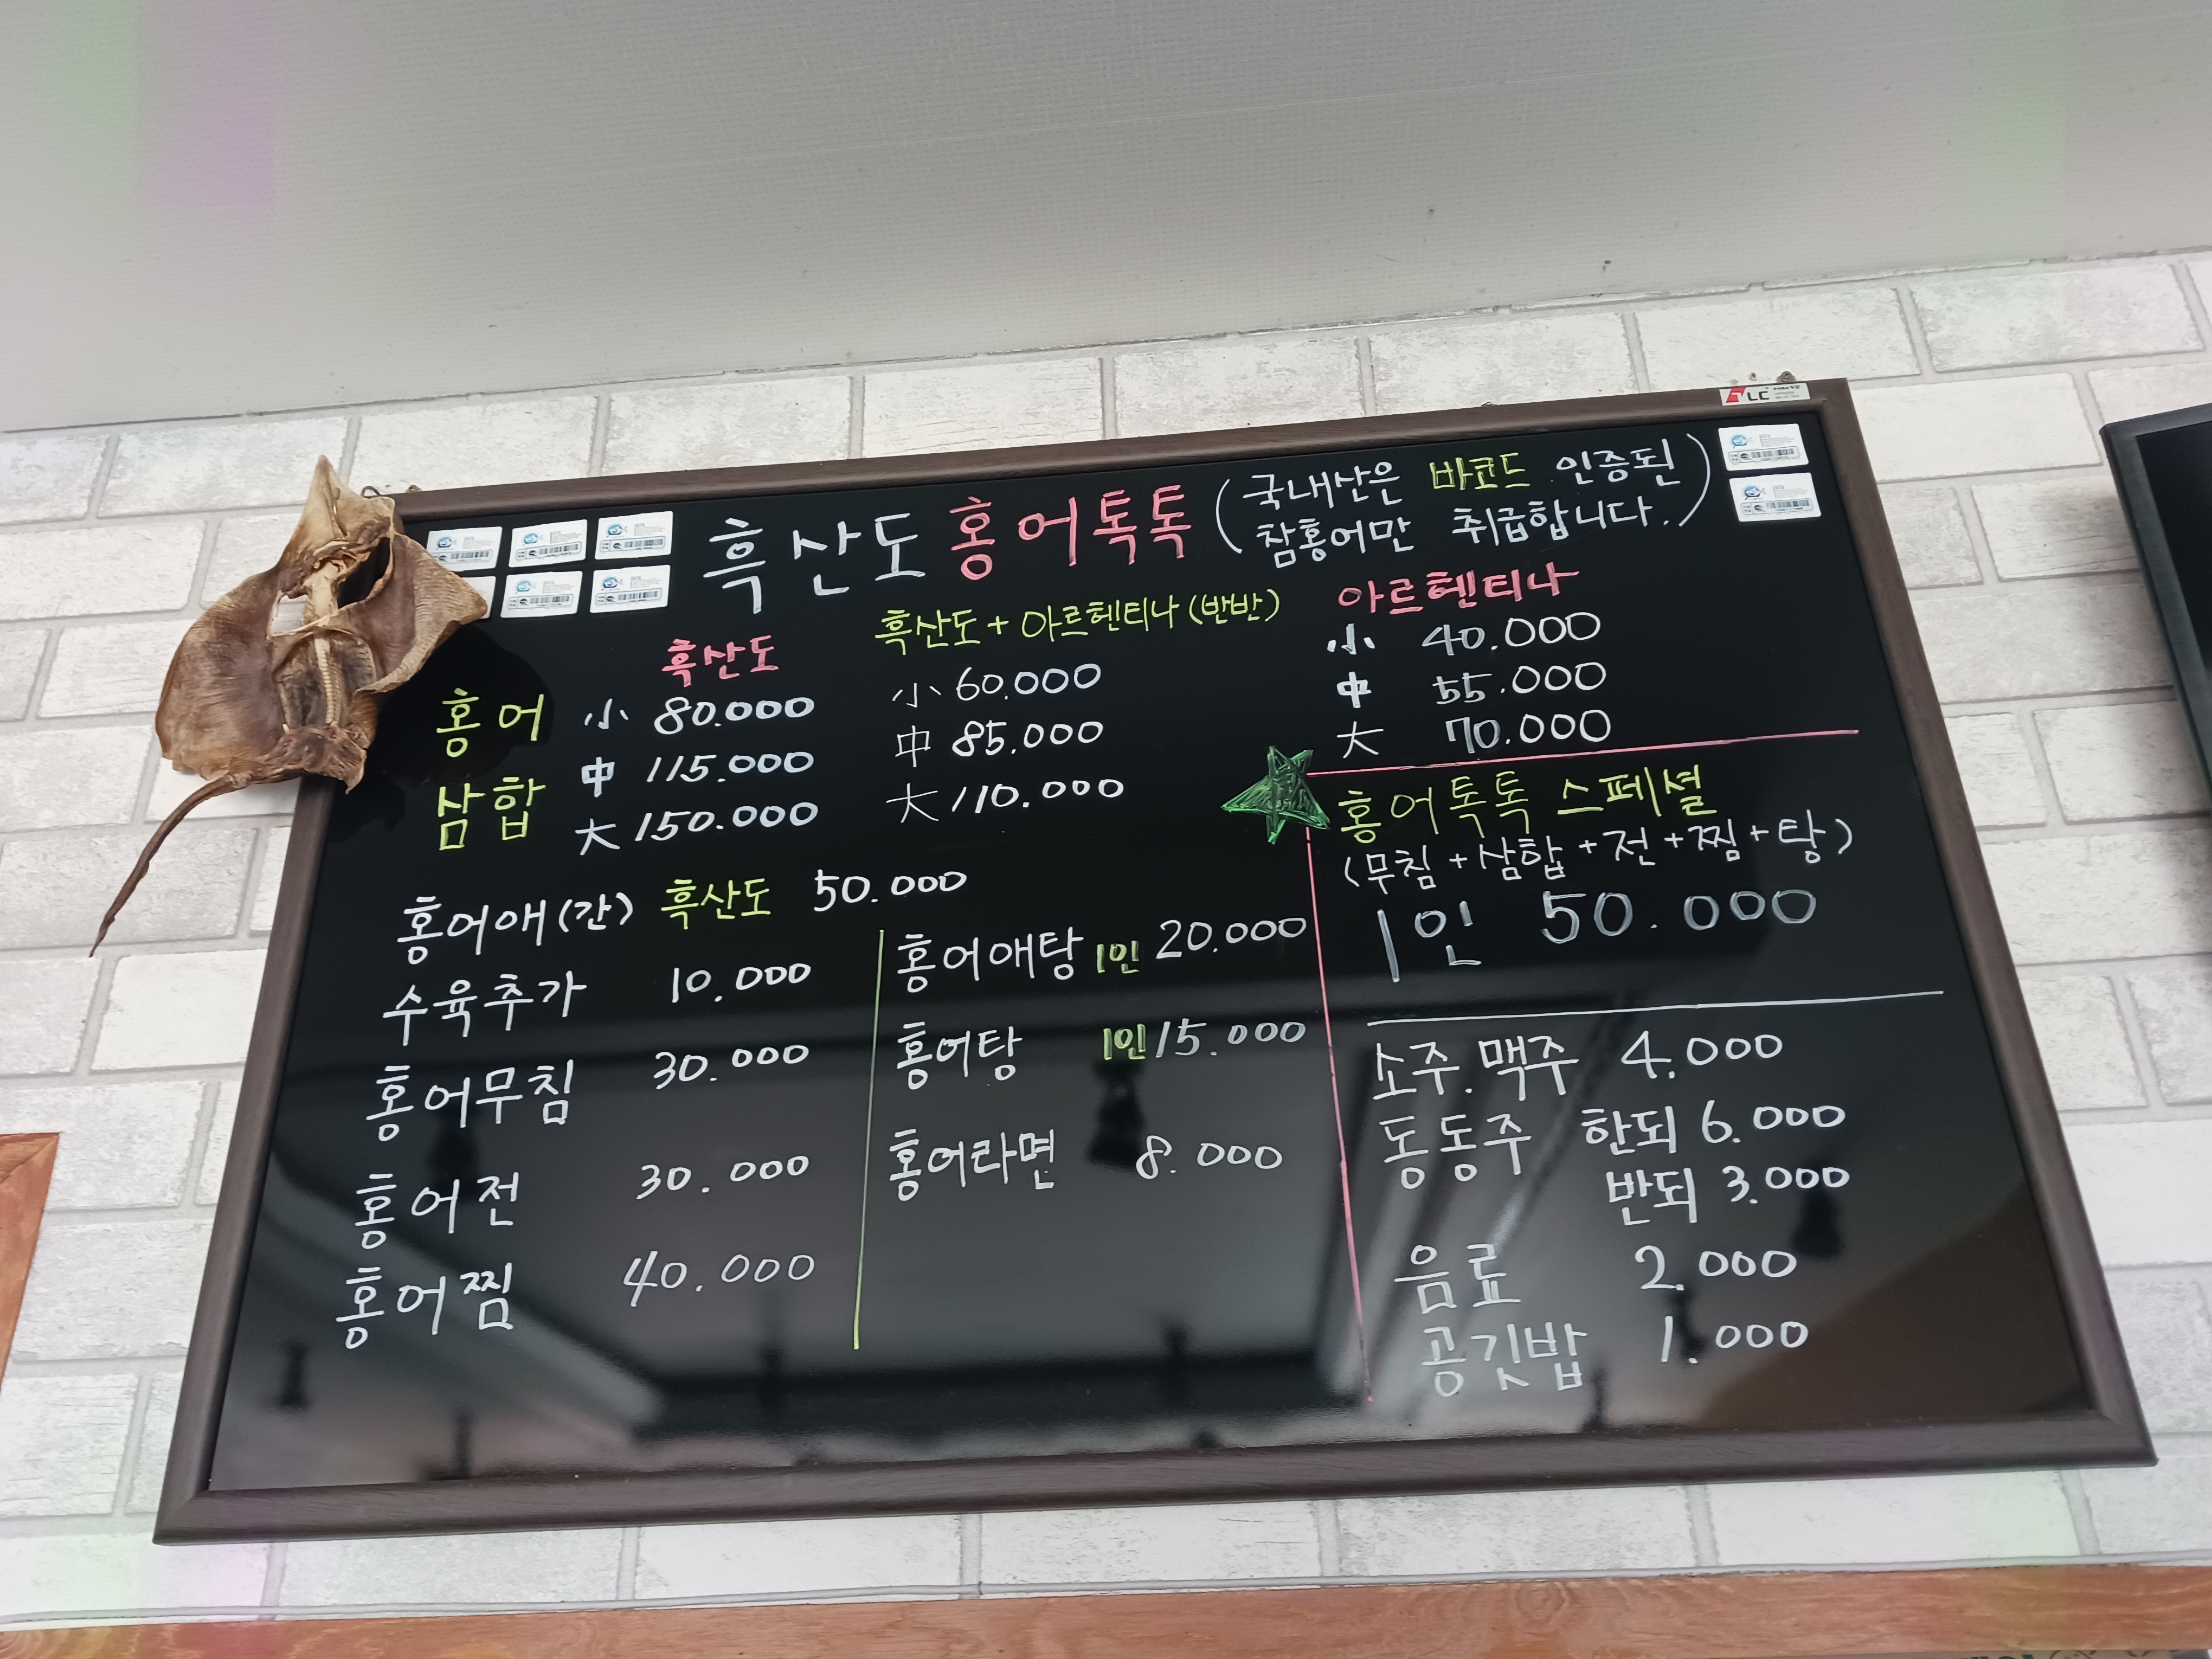 흑산도 홍어톡톡 (국내산은 바코드 인증된
참홍어만 취급합니다.)
홍어
삼합
흑산도
小 80.000
中 115.000
大 150.000
흑산도+아르헨티나(반반)
小 60.000
中 85.000
大 110.000
아르헨티나
小 40.000
中 55.000
大 70.000
홍어톡톡 스페셜
(무침+삼합+전+찜+탕)
1인 50.000
홍어애(간) 흑산도 50.000
수육추가 10.000
홍어무침 30.000
홍어전 30.000
홍어찜 40.000
홍어애탕 1인 20.000
홍어탕 1인 15.000
홍어라면 8.000
소주.맥주 4.000
동동주 한되 6.000
반되 3.000
음료 2.000
공깃밥 1.000
LC